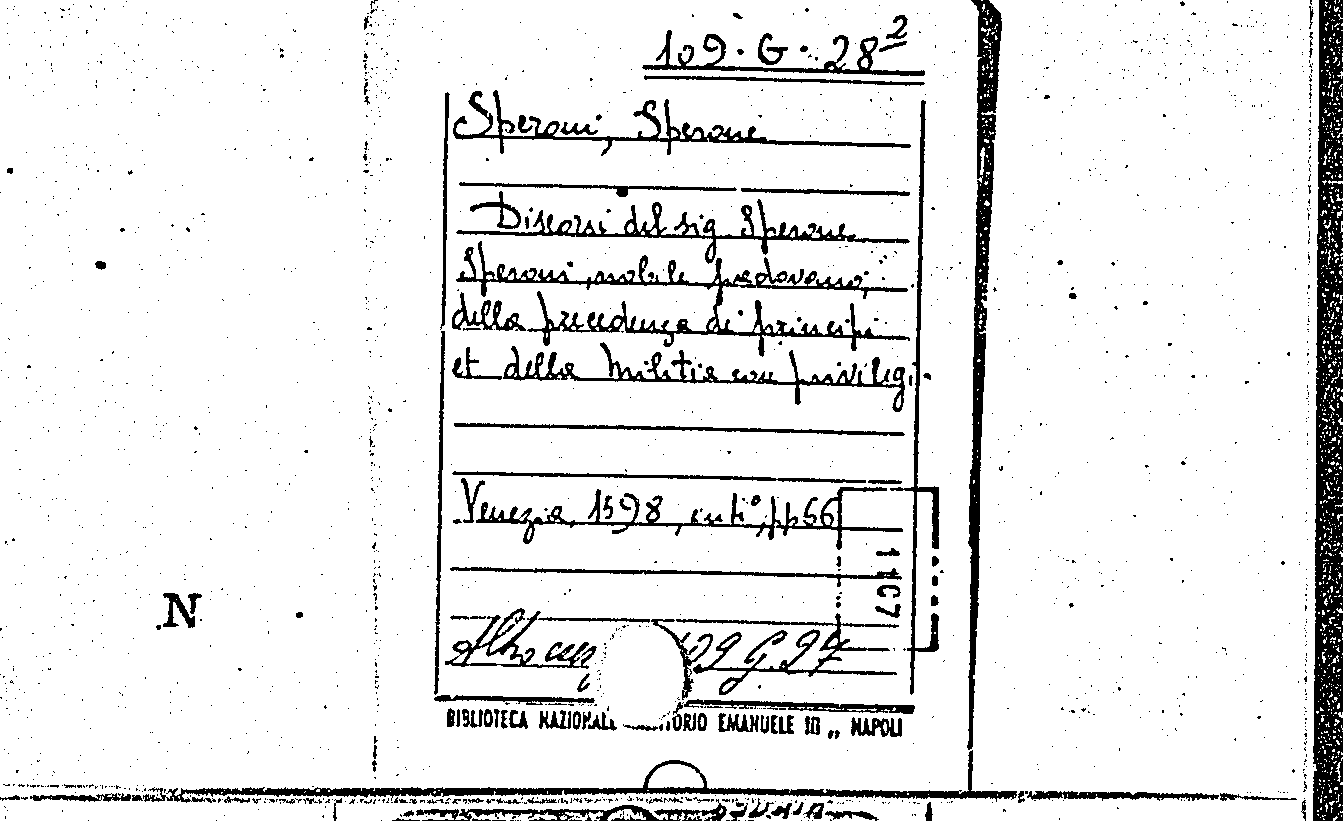 109. G. 28²
Speroni, Sperone
Discorsi del sig. Sperone
Speroni, nobile padovano,
della precedenza de' principi
et della militia con privilegi.
Venezia, 1598, in 4°, pp 56
1107
Altro esp. 109 G. 27
N
BIBLIOTECA NAZIONALE EMANUELE III „ NAPOLI